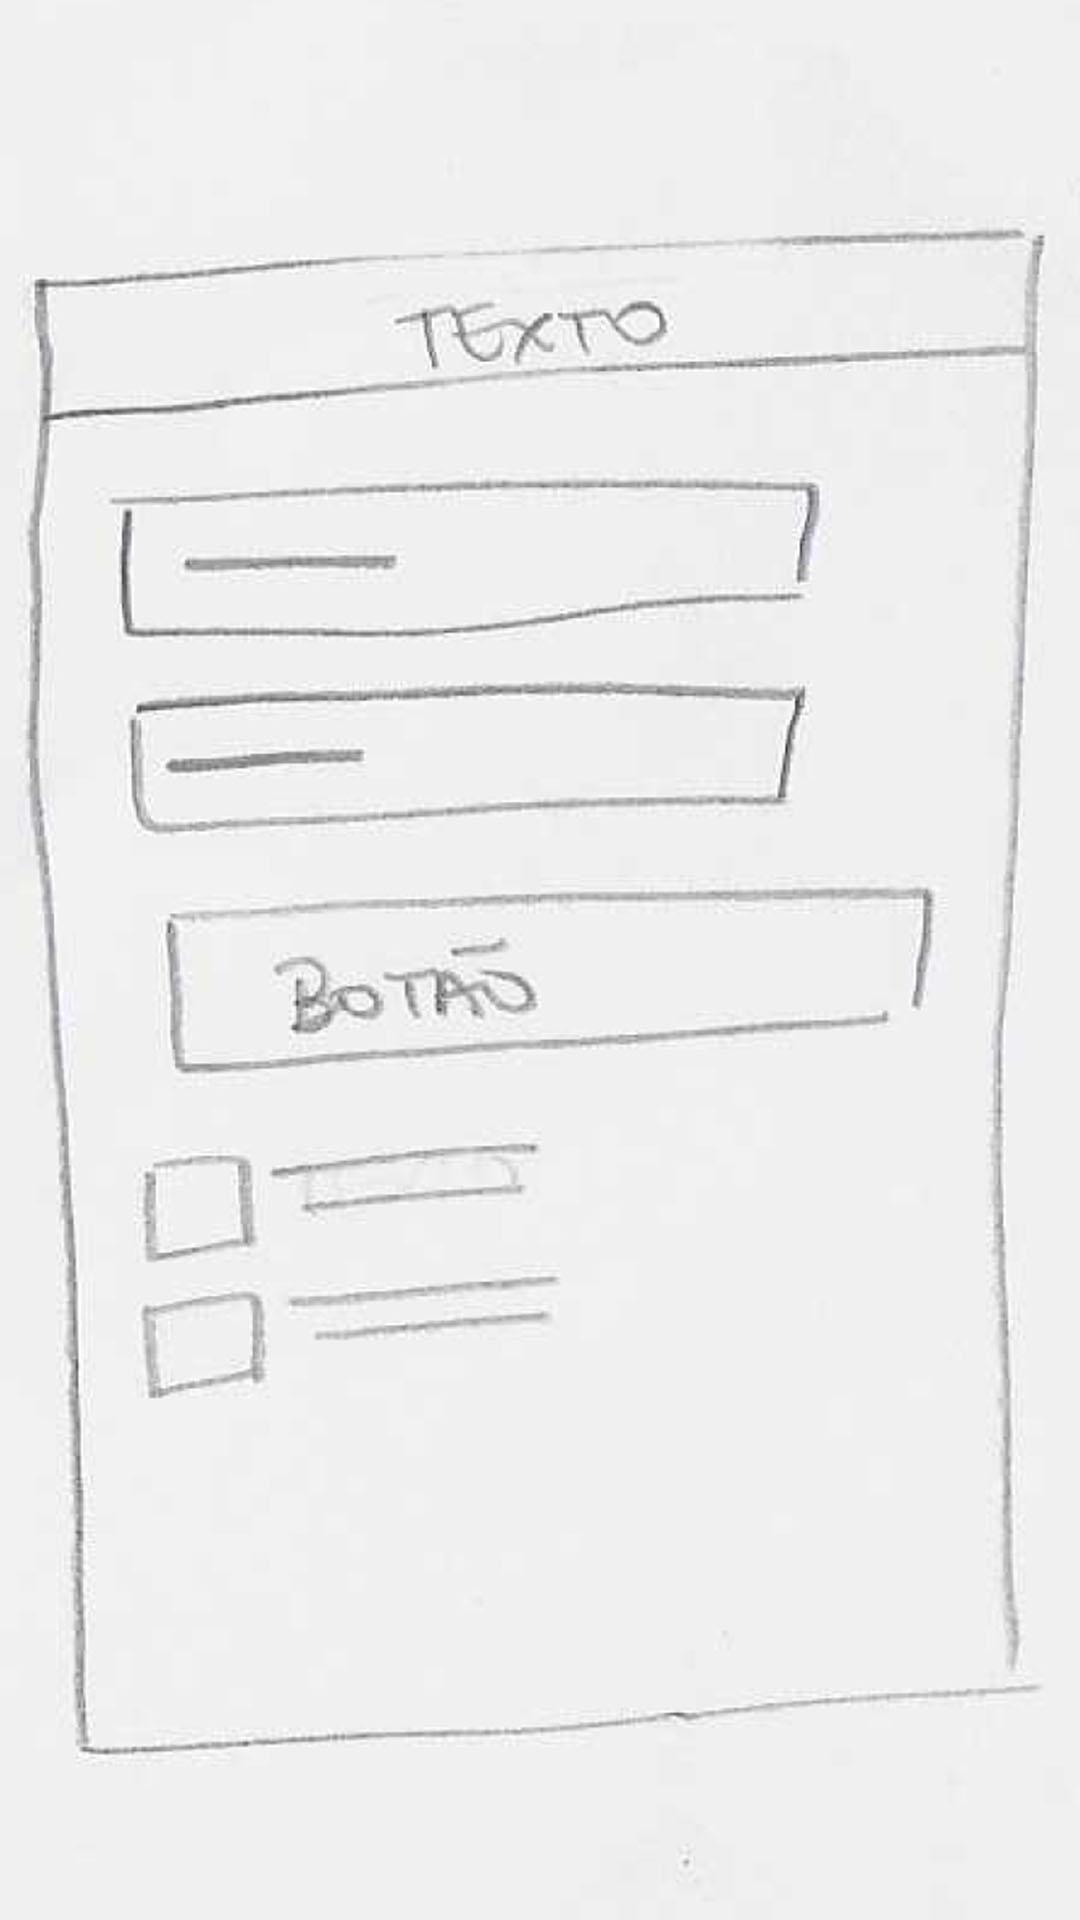 TEXTO
BOTÃO